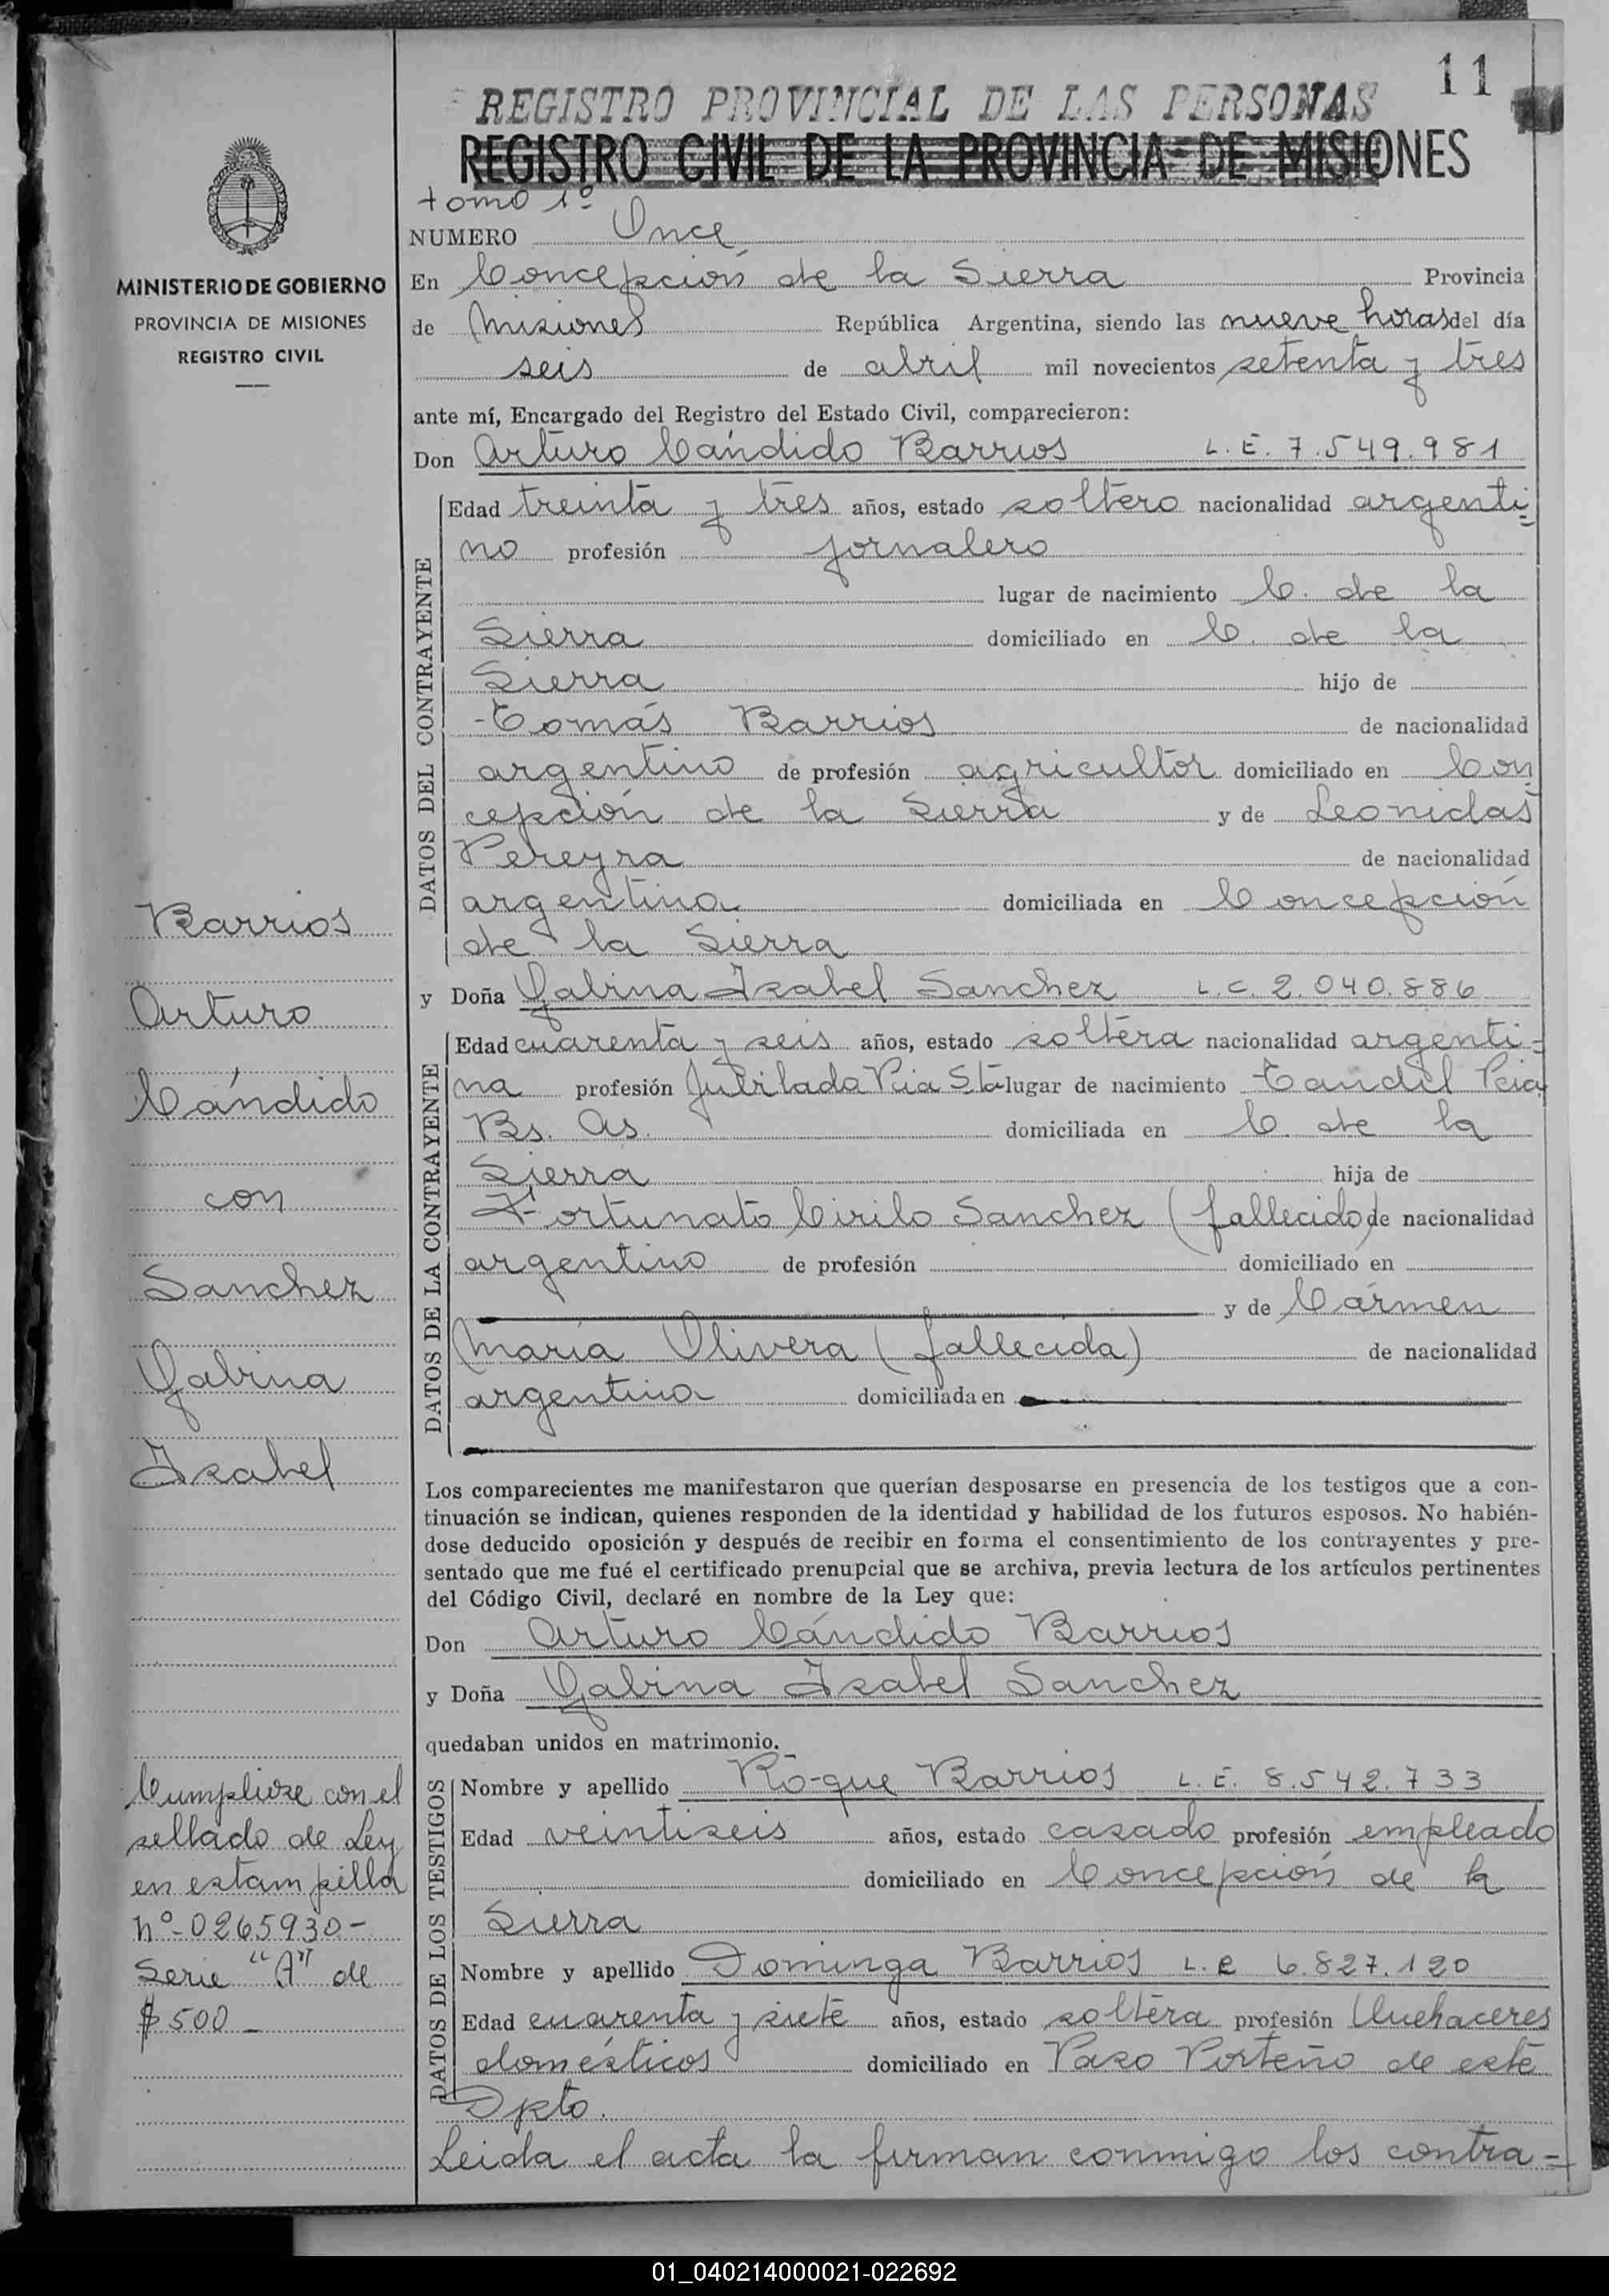 11
REGISTRO PROVINCIAL DE LAS PERSONAS
REGISTRO CIVIL DE LA PROVINCIA DE MISIONES
MINISTERIO DE GOBIERNO
PROVINCIA DE MISIONES
REGISTRO CIVIL
tomo 1º
NUMERO Once
En Concepción de la Sierra Provincia
de Misiones República Argentina, siendo las nueve horas del día
seis de abril mil novecientos setenta y tres
ante mí, Encargado del Registro del Estado Civil, comparecieron:
Don Arturo Cándido Barrios L.E. 7.549.981
DATOS DEL CONTRAYENTE
Edad treinta y tres años, estado soltero nacionalidad argenti=
no profesión jornalero
lugar de nacimiento C. de la
Sierra domiciliado en C. de la
Sierra hijo de
Tomás Barrios de nacionalidad
argentino de profesión agricultor domiciliado en Con
cepción de la Sierra y de Leonidas
Pereyra de nacionalidad
argentina domiciliada en Concepción
de la Sierra
y Doña Gabina Isabel Sanchez L.C. 2.040.886
DATOS DE LA CONTRAYENTE
Edad cuarenta y seis años, estado soltera nacionalidad argenti=
na profesión Jubilada Pcia Sta lugar de nacimiento Tandil Pcia
Bs. As. domiciliada en C. de la
Sierra hija de
Fortunato Cirilo Sanchez (fallecido) de nacionalidad
argentino de profesión domiciliado en
y de Cármen
María Olivera (fallecida) de nacionalidad
argentina domiciliada en
Los comparecientes me manifestaron que querían desposarse en presencia de los testigos que a con-
tinuación se indican, quienes responden de la identidad y habilidad de los futuros esposos. No habién-
dose deducido oposición y después de recibir en forma el consentimiento de los contrayentes y pre-
sentado que me fué el certificado prenupcial que se archiva, previa lectura de los artículos pertinentes
del Código Civil, declaré en nombre de la Ley que:
Don Arturo Cándido Barrios
y Doña Gabina Isabel Sanchez
quedaban unidos en matrimonio.
DATOS DE LOS TESTIGOS
Nombre y apellido Ro-que Barrios L.E. 8.542.733
Edad veintiseis años, estado casado profesión empleado
domiciliado en Concepción de la
Sierra
Nombre y apellido Dominga Barrios L.C 6.827.120
Edad cuarenta y siete años, estado soltera profesión Quehaceres
domésticos domiciliado en Paso Porteño de este
Dpto.
Leida el acta la firman conmigo los contra=
Barrios
Arturo
Cándido
con
Sanchez
Gabina
Isabel
Cumpliose con el
sellado de Ley
en estampilla
nº-0265930-
Serie "A" de
$ 500-
01_040214000021-022692